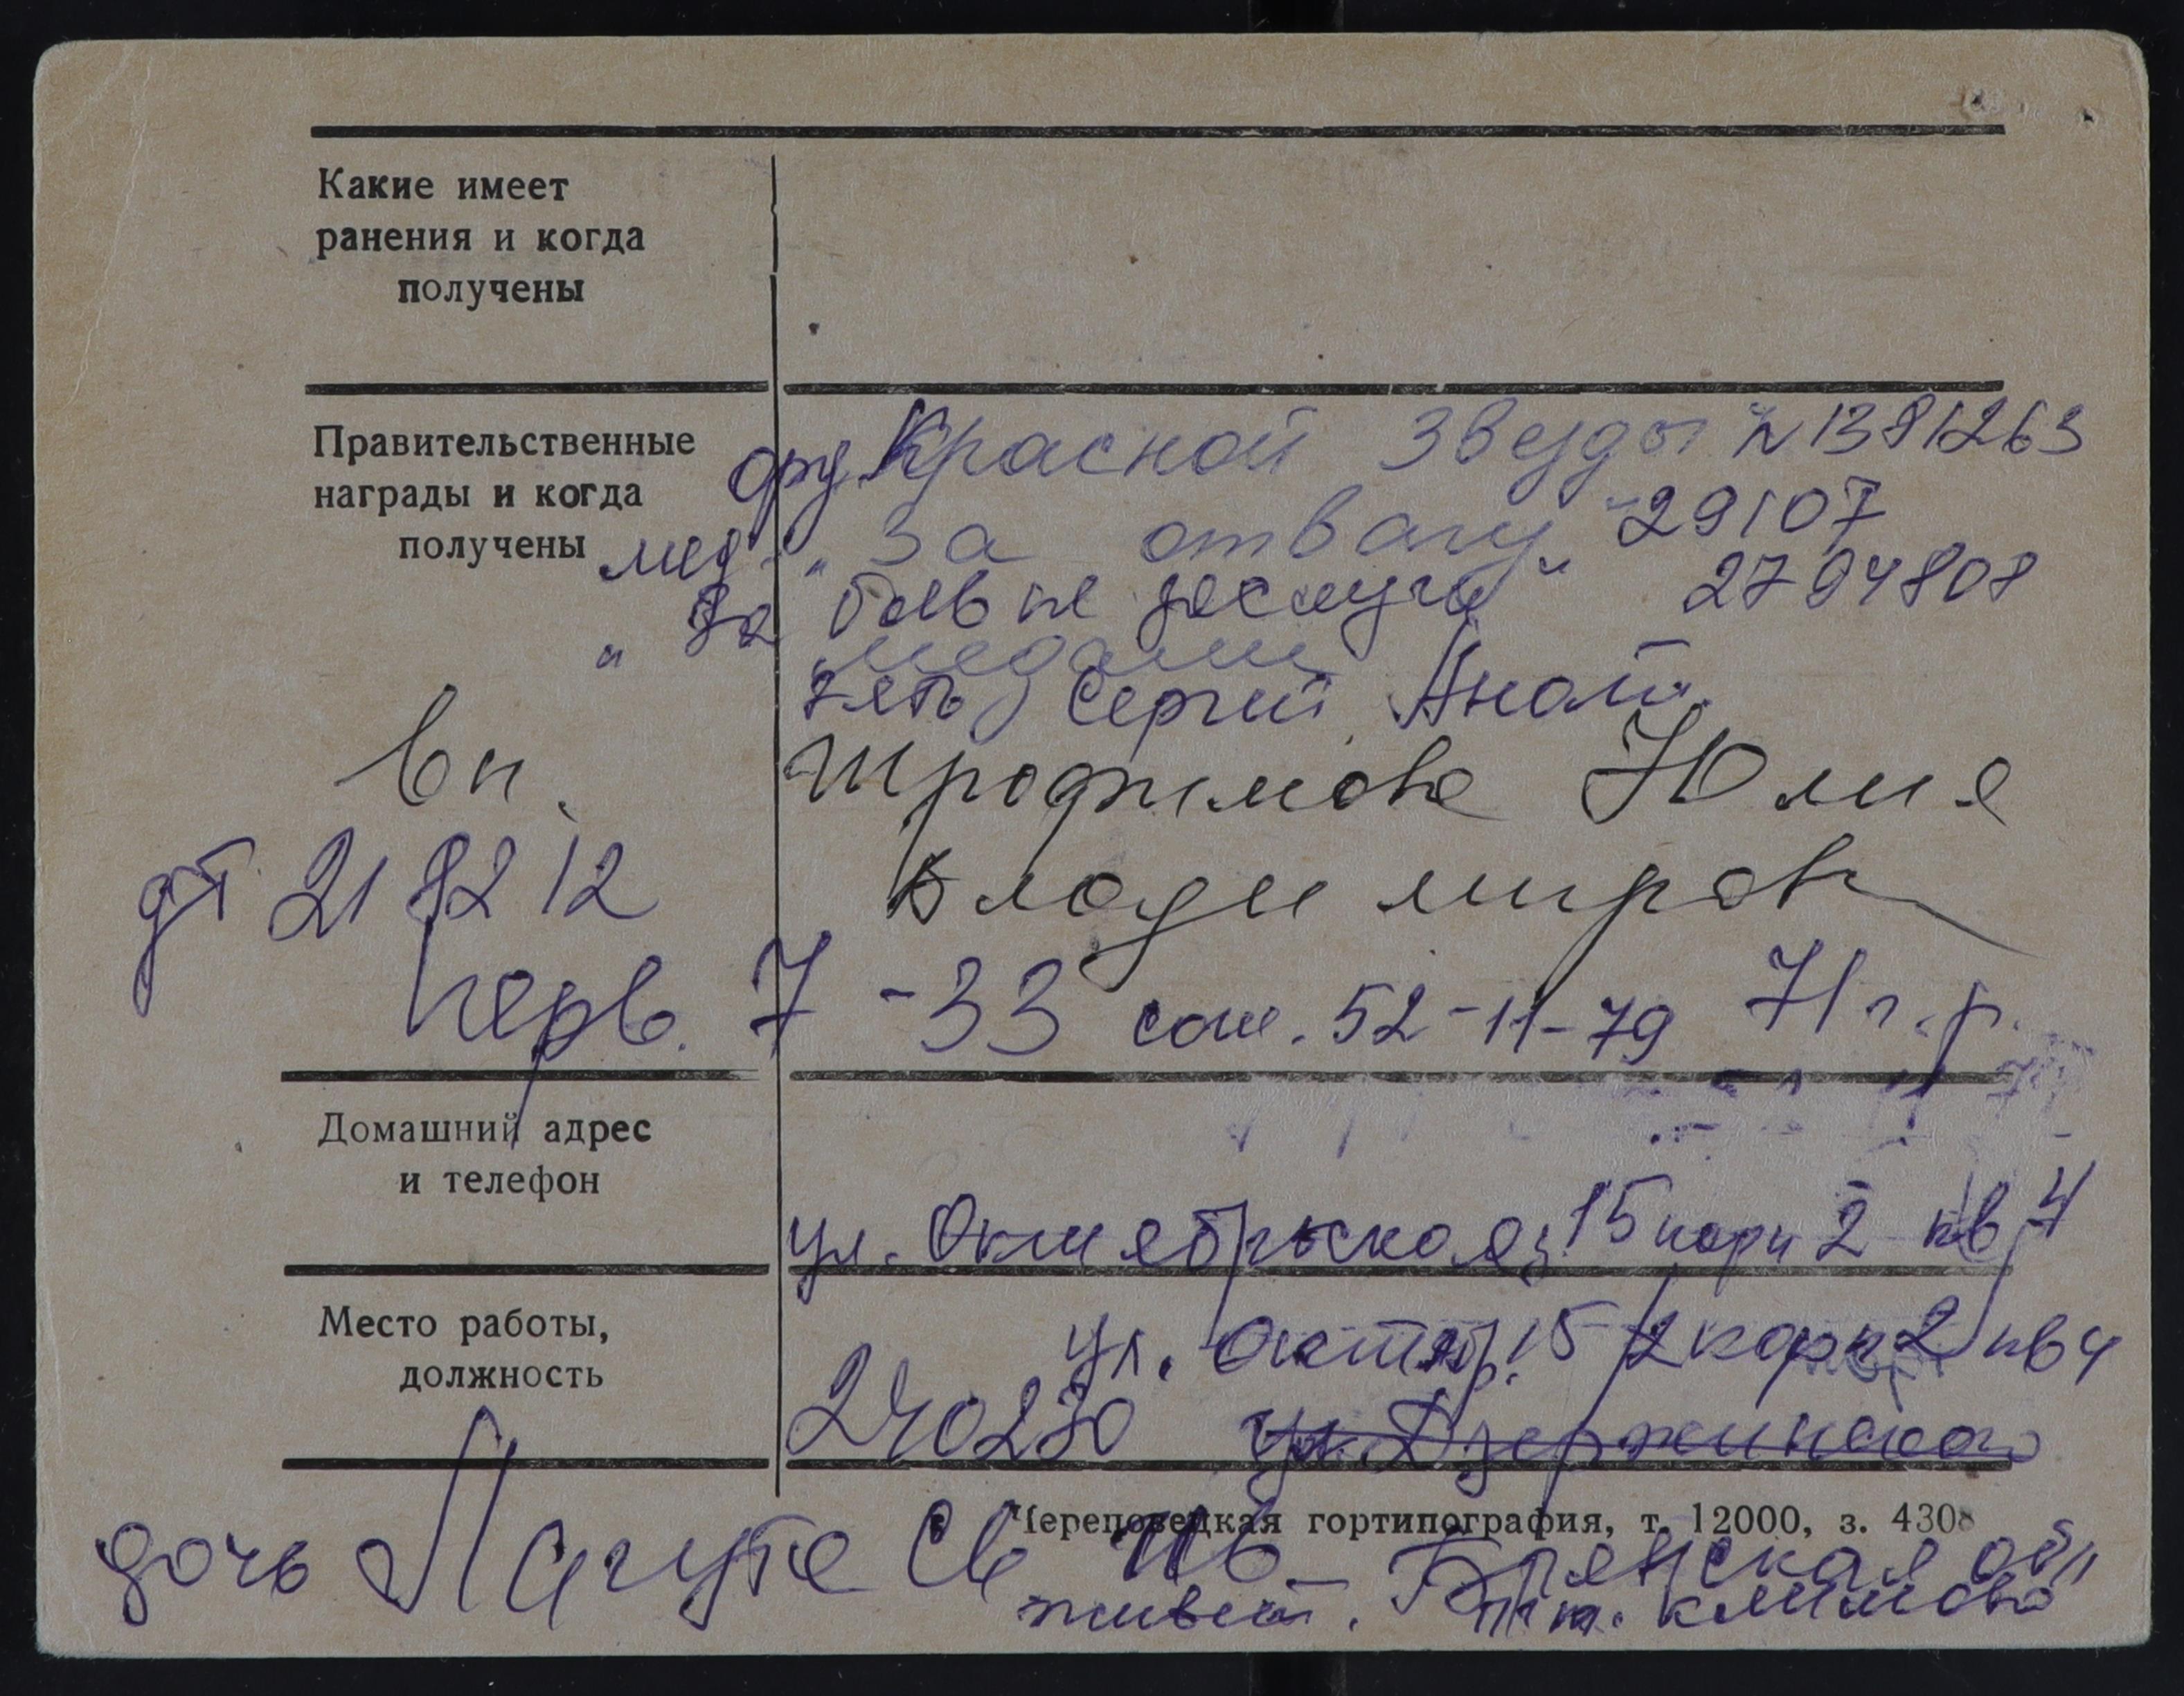 Какие имеет
ранения и когда
получены
Правительственные
награды и когда
получены
орд. Красной Звезды № 1381263
мед. „За отвагу" 29107
„За боевые заслуги" 2794808
медали
зять Сергей Анат.
вн. Трофимова Юлия
Владимиров
дт 21 82 12
Черв. 7 - 33 сот. 52-11-79 71 г.р.
Домашний адрес
и телефон
ул. Октябрьская, 15 корп 2 кв 4
Место работы,
должность
ул. Октябр. 15/2 корп 2 кв 4
240230 ул. Дзержинского
Череповецкая гортипография, т. 12000, з. 4308
дочь Лагута Св Ив
живет. Брянская обл
пгт. Климово